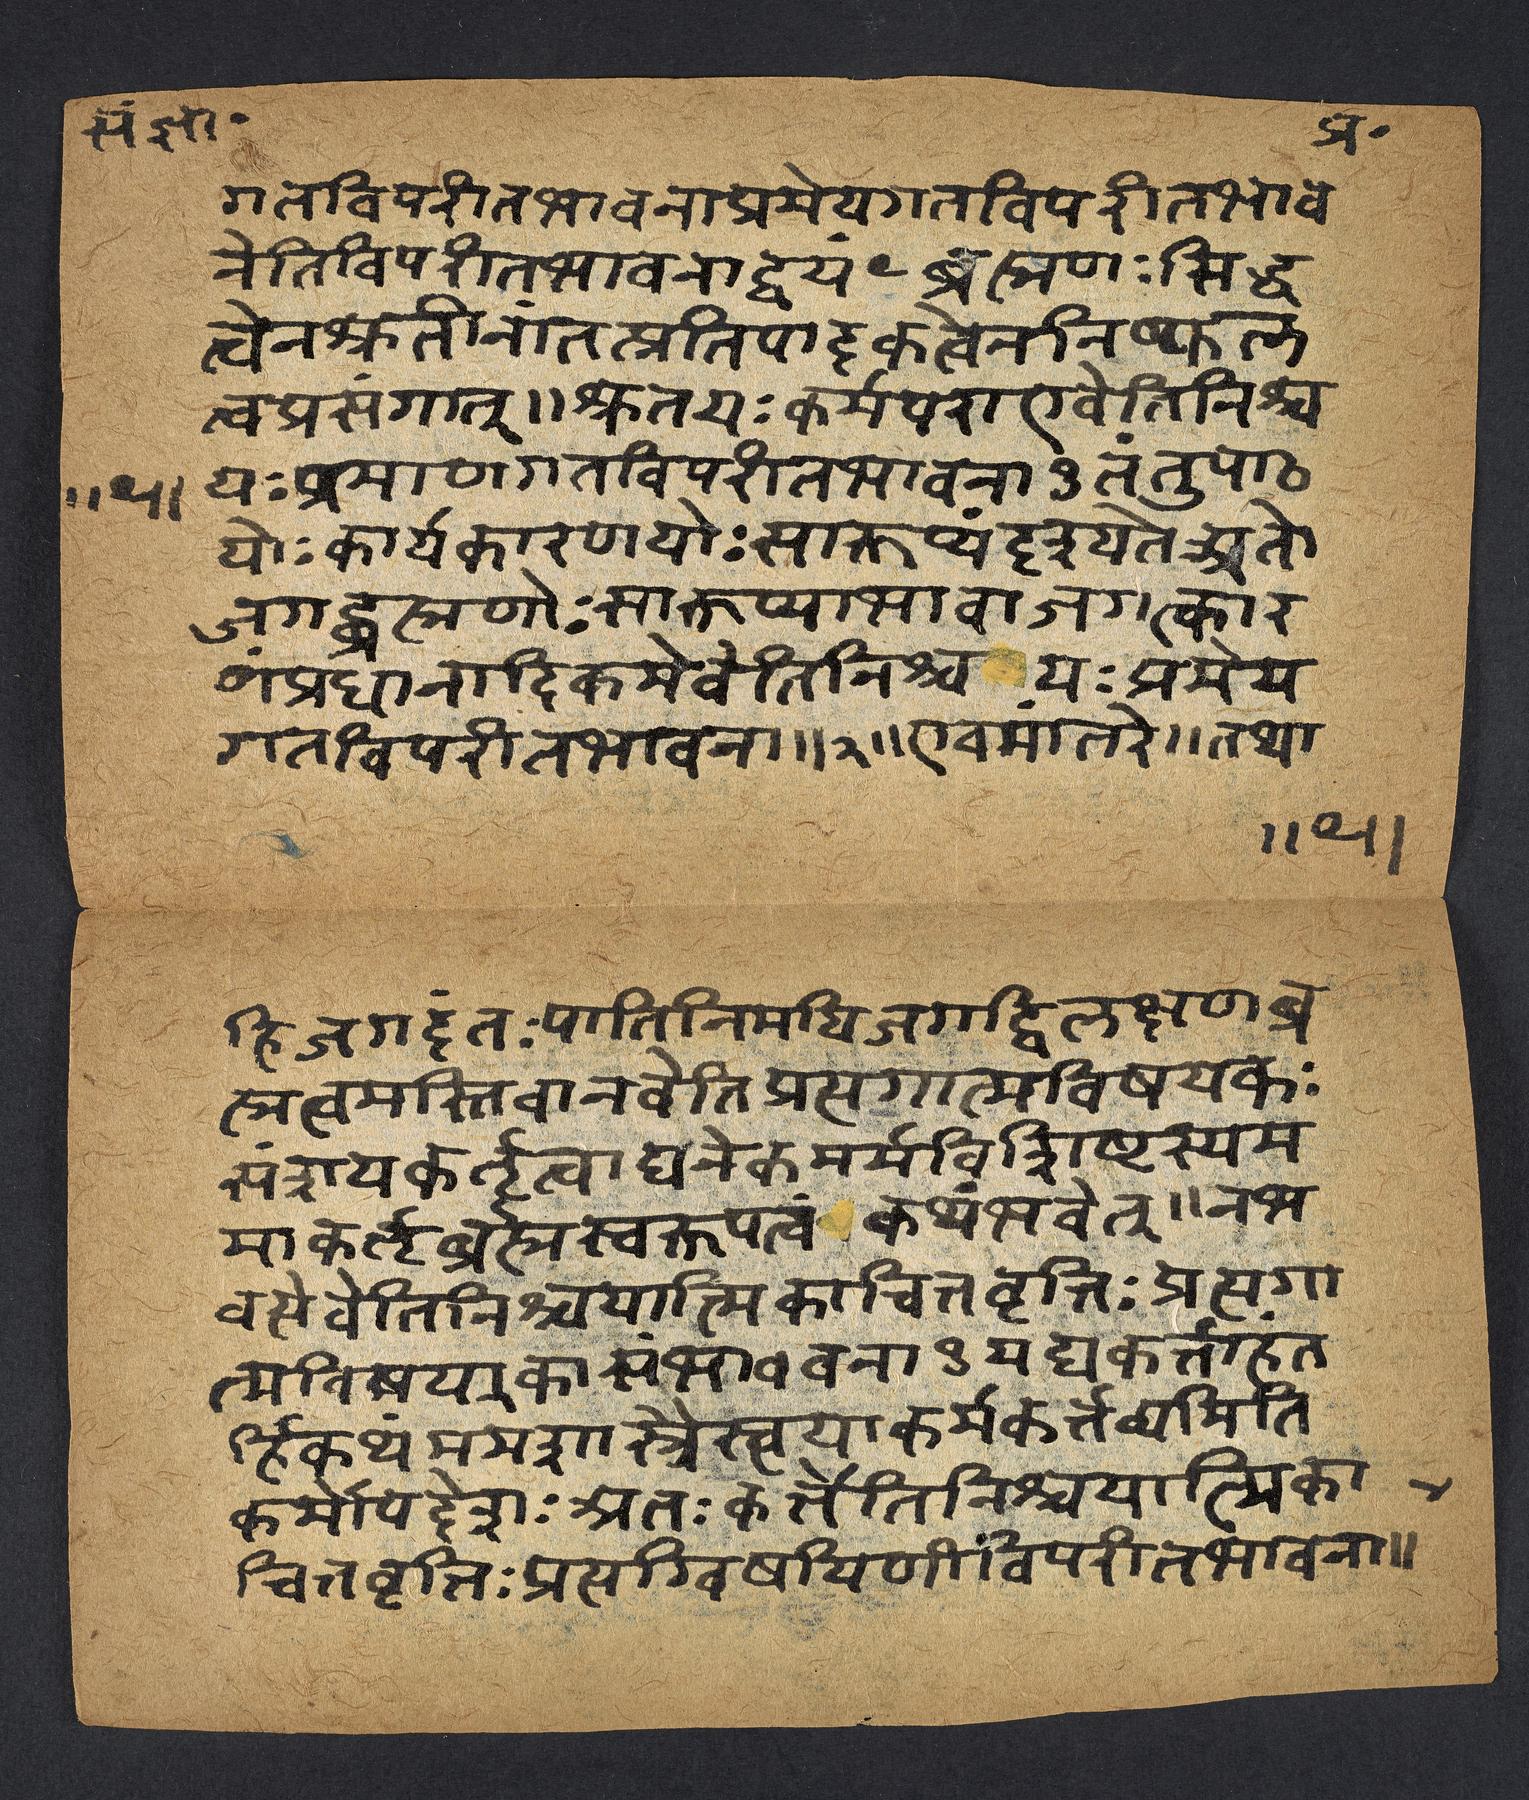 संज्ञा॰ प्र॰
गतविपरीतभावनाप्रमेयगतविपरीतभाव
नेतिविपरीतभावनाद्वयं १ ब्रह्मणः सिद्ध
त्वेनश्रुतीनांतत्प्रतिपादकत्वेननिष्फल
त्वप्रसंगात् ॥ श्रुतयः कर्मपराएवेतिनिश्च
यः प्रमाणगतविपरीतभावना १ तंतुपाट
योः कार्यकारणयोः सारूप्यं दृश्यते अतो
जगद्ब्रह्मणोः सारूप्याभावाज्जगत्कार
णंप्रधानादिकमेवेतिनिश्च यः प्रमेय
गतविपरीतभावना ॥ २ ॥ एवमांतरे ॥ तथा
हि जगदंतः पातिनिमयि जगद्विलक्षण ब्र
ह्मत्वमस्ति वा नवेति प्रत्यगात्मविषयकः
संशय कर्तृत्वाद्यनेकधर्मविशिष्टस्यम
मा कर्तृब्रह्मस्वरूपत्वं कथंभवेत् ॥ नभ
वत्येवेतिनिश्चयात्मिका चित्तवृत्तिः प्रत्यगा
त्मविषयका संभावना १ यद्यकर्त्ताहंत
र्हिकथं ममशास्त्रैस्त्वया कर्मकर्त्तव्यमिति
कर्मोपदेशः अतः कर्त्तेतिनिश्चयात्मिका
चित्तवृत्तिः प्रत्यग्विषयिणीविपरीतभावना ॥